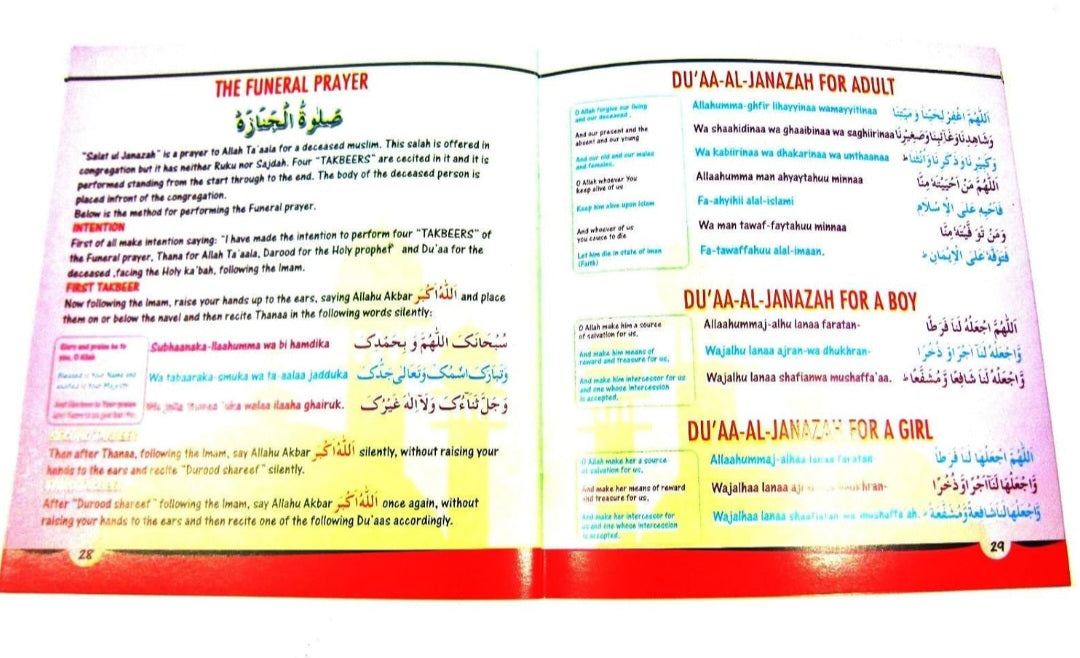 THE FUNERAL PRAYER
صَلٰوةُ الْجَنَازَهْ
"Salat ul Janazah" is a prayer to Allah Ta'aala for a deceased muslim. This salah is offered in
congregation but it has neither Ruku nor Sajdah. Four "TAKBEERS" are cecited in it and it is
performed standing from the start through to the end. The body of the deceased person is
placed infront of the congregation.
Below is the method for performing the Funeral prayer.
INTENTION
First of all make intention saying: "I have made the intention to perform four "TAKBEERS" of
the Funeral prayer, Thana for Allah Ta'aala, Darood for the Holy prophet and Du'aa for the
deceased ,facing the Holy ka'bah, following the Imam.
FIRST TAKBEER
Now following the Imam, raise your hands up to the ears, saying Allahu Akbar اَللّٰهُ اَكْبَرْ and place
them on or below the navel and then recite Thanaa in the following words silently:
Glory and praise be to
you, O Allah
Subhaanaka-llaahumma wa bi hamdika
سُبْحَانَكَ اللّٰهُمَّ وَ بِحَمْدِكَ
Blessed is Your Name and
exalted is Your Majesty
Wa tabaaraka-smuka wa ta-aalaa jadduka
وَتَبَارَكَ اسْمُكَ وَتَعَالٰى جَدُّكَ
walaa ilaaha ghairuk.
وَجَلَّ ثَنَاءُكَ وَلَآ اِلٰهَ غَيْرُكَ
SECOND TAKBEER
Then after Thanaa, following the Imam, say Allahu Akbar اَللّٰهُ اَكْبَرْ silently, without raising your
hands to the ears and recite "Durood shareef" silently.
After "Durood shareef" following the Imam, say Allahu Akbar اَللّٰهُ اَكْبَرْ once again, without
raising your hands to the ears and then recite one of the following Du'aas accordingly.
28
DU'AA-AL-JANAZAH FOR ADULT
O Allah forgive our living
and our deceased .
Allahumma-ghfir lihayyinaa wamayyitinaa
اَللّٰهُمَّ اغْفِرْ لِحَيِّنَا وَ مَيِّتِنَا
And our present and the
absent and our young
Wa shaahidinaa wa ghaaibinaa wa saghiirinaa
وَشَاهِدِنَا وَغَائِبِنَا وَصَغِيْرِنَا
And our old and our males
and females.
Wa kabiirinaa wa dhakarinaa wa unthaanaa
وَكَبِيْرِنَا وَذَكَرِنَا وَاُنْثَانَا ط
O Allah whoever You
keep alive of us
Allaahumma man ahyaytahuu minnaa
اَللّٰهُمَّ مَنْ اَحْيَيْتَهٗ مِنَّا
Keep him alive upon Islam
Fa-ahyihii alal-islami
فَاَحْيِهٖ عَلَى الْاِسْلَامِ
And whoever of us
you cause to die
Wa man tawaf-faytahuu minnaa
وَمَنْ تَوَفَّيْتَهٗ مِنَّا
Let him die in state of iman
(Faith)
Fa-tawaffahuu alal-imaan.
فَتَوَفَّهٗ عَلَى الْاِيْمَانِ ط
DU'AA-AL-JANAZAH FOR A BOY
O Allah make him a source
of salvation for us,
Allaahummaj-alhu lanaa faratan-
اَللّٰهُمَّ اجْعَلْهُ لَنَا فَرَطًا
And make him means of
reward and treasure for us,
Wajalhu lanaa ajran-wa dhukhran-
وَّاجْعَلْهُ لَنَآ اَجْرًا وَّ ذُخْرًا
And make him intercessor for us
and one whose intercession
is accepted.
Wajalhu lanaa shafianwa mushaffa'aa.
وَّاجْعَلْهُ لَنَا شَافِعًا وَّ مُشَفَّعًا ط
DU'AA-AL-JANAZAH FOR A GIRL
O Allah make her a source
of salvation for us,
Allaahummaj-alhaa lanaa faratan
اَللّٰهُمَّ اجْعَلْهَا لَنَا فَرَطًا
And make her means of reward
and treasure for us,
Wajalhaa lanaa
وَّاجْعَلْهَا لَنَآ اَجْرًا وَّ ذُخْرًا
And make her intercessor for
us and one whose intercession
is accepted.
Wajalhaa lanaa shaafiatan wa mushaffa ah.
وَّاجْعَلْهَا لَنَا شَافِعَةً وَّ مُشَفَّعَةً ط
29